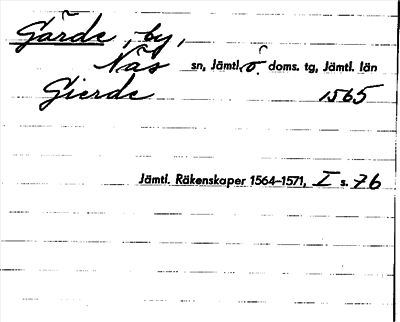 Gärde, by,
Näs sn, Jämtl. ö. doms. tg, Jämtl. län
Gierde 1565
Jämtl. Räkenskaper 1564-1571, I s. 76